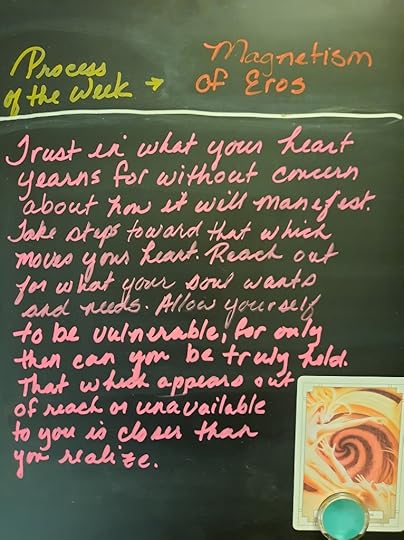 Process
of the Week →
Magnetism
of Eros
Trust in what your heart
yearns for without concern
about how it will manefest.
Take steps toward that which
moves your heart. Reach out
for what your soul wants
and needs. Allow yourself
to be vulnerable, for only
then can you be truly held.
That which appears out
of reach or unavailable
to you is closer than
you realize.